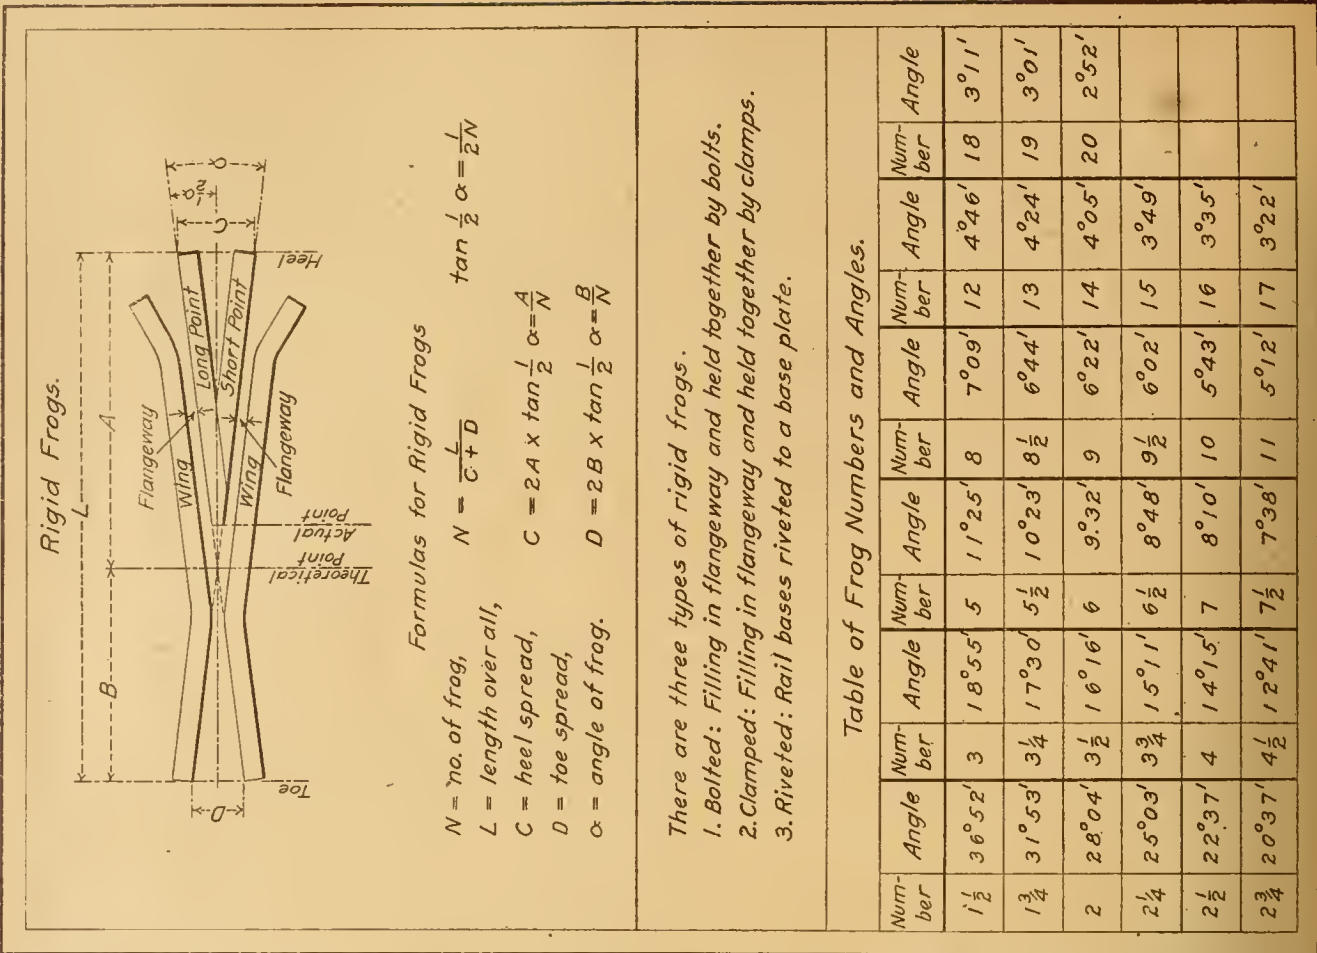 Rigid Frogs.
L
B
A
Flangeway
Wing
Long Point
Short Point
Wing
Flangeway
D
C
½α
α
Toe
Theoretical
Point
Actual
Point
Heel
Formulas for Rigid Frogs
N = no. of frog, N = L/(C + D) tan ½ α = 1/2N
L = length over all,
C = heel spread, C = 2A x tan ½ α = A/N
D = toe spread,
α = angle of frog. D = 2B x tan ½ α = B/N
There are three types of rigid frogs.
1. Bolted: Filling in flangeway and held together by bolts.
2. Clamped: Filling in flangeway and held together by clamps.
3. Riveted: Rail bases riveted to a base plate.
Table of Frog Numbers and Angles.
Num-ber Angle Num-ber Angle Num-ber Angle Num-ber Angle Num-ber Angle Num-ber Angle
1½ 36°52' 3 18°55' 5 11°25' 8 7°09' 12 4°46' 18 3°11'
1¾ 31°53' 3¼ 17°30' 5½ 10°23' 8½ 6°44' 13 4°24' 19 3°01'
2 28°04' 3½ 16°16' 6 9°32' 9 6°22' 14 4°05' 20 2°52'
2¼ 25°03' 3¾ 15°11' 6½ 8°48' 9½ 6°02' 15 3°49'
2½ 22°37' 4 14°15' 7 8°10' 10 5°43' 16 3°35'
2¾ 20°37' 4½ 12°41' 7½ 7°38' 11 5°12' 17 3°22'